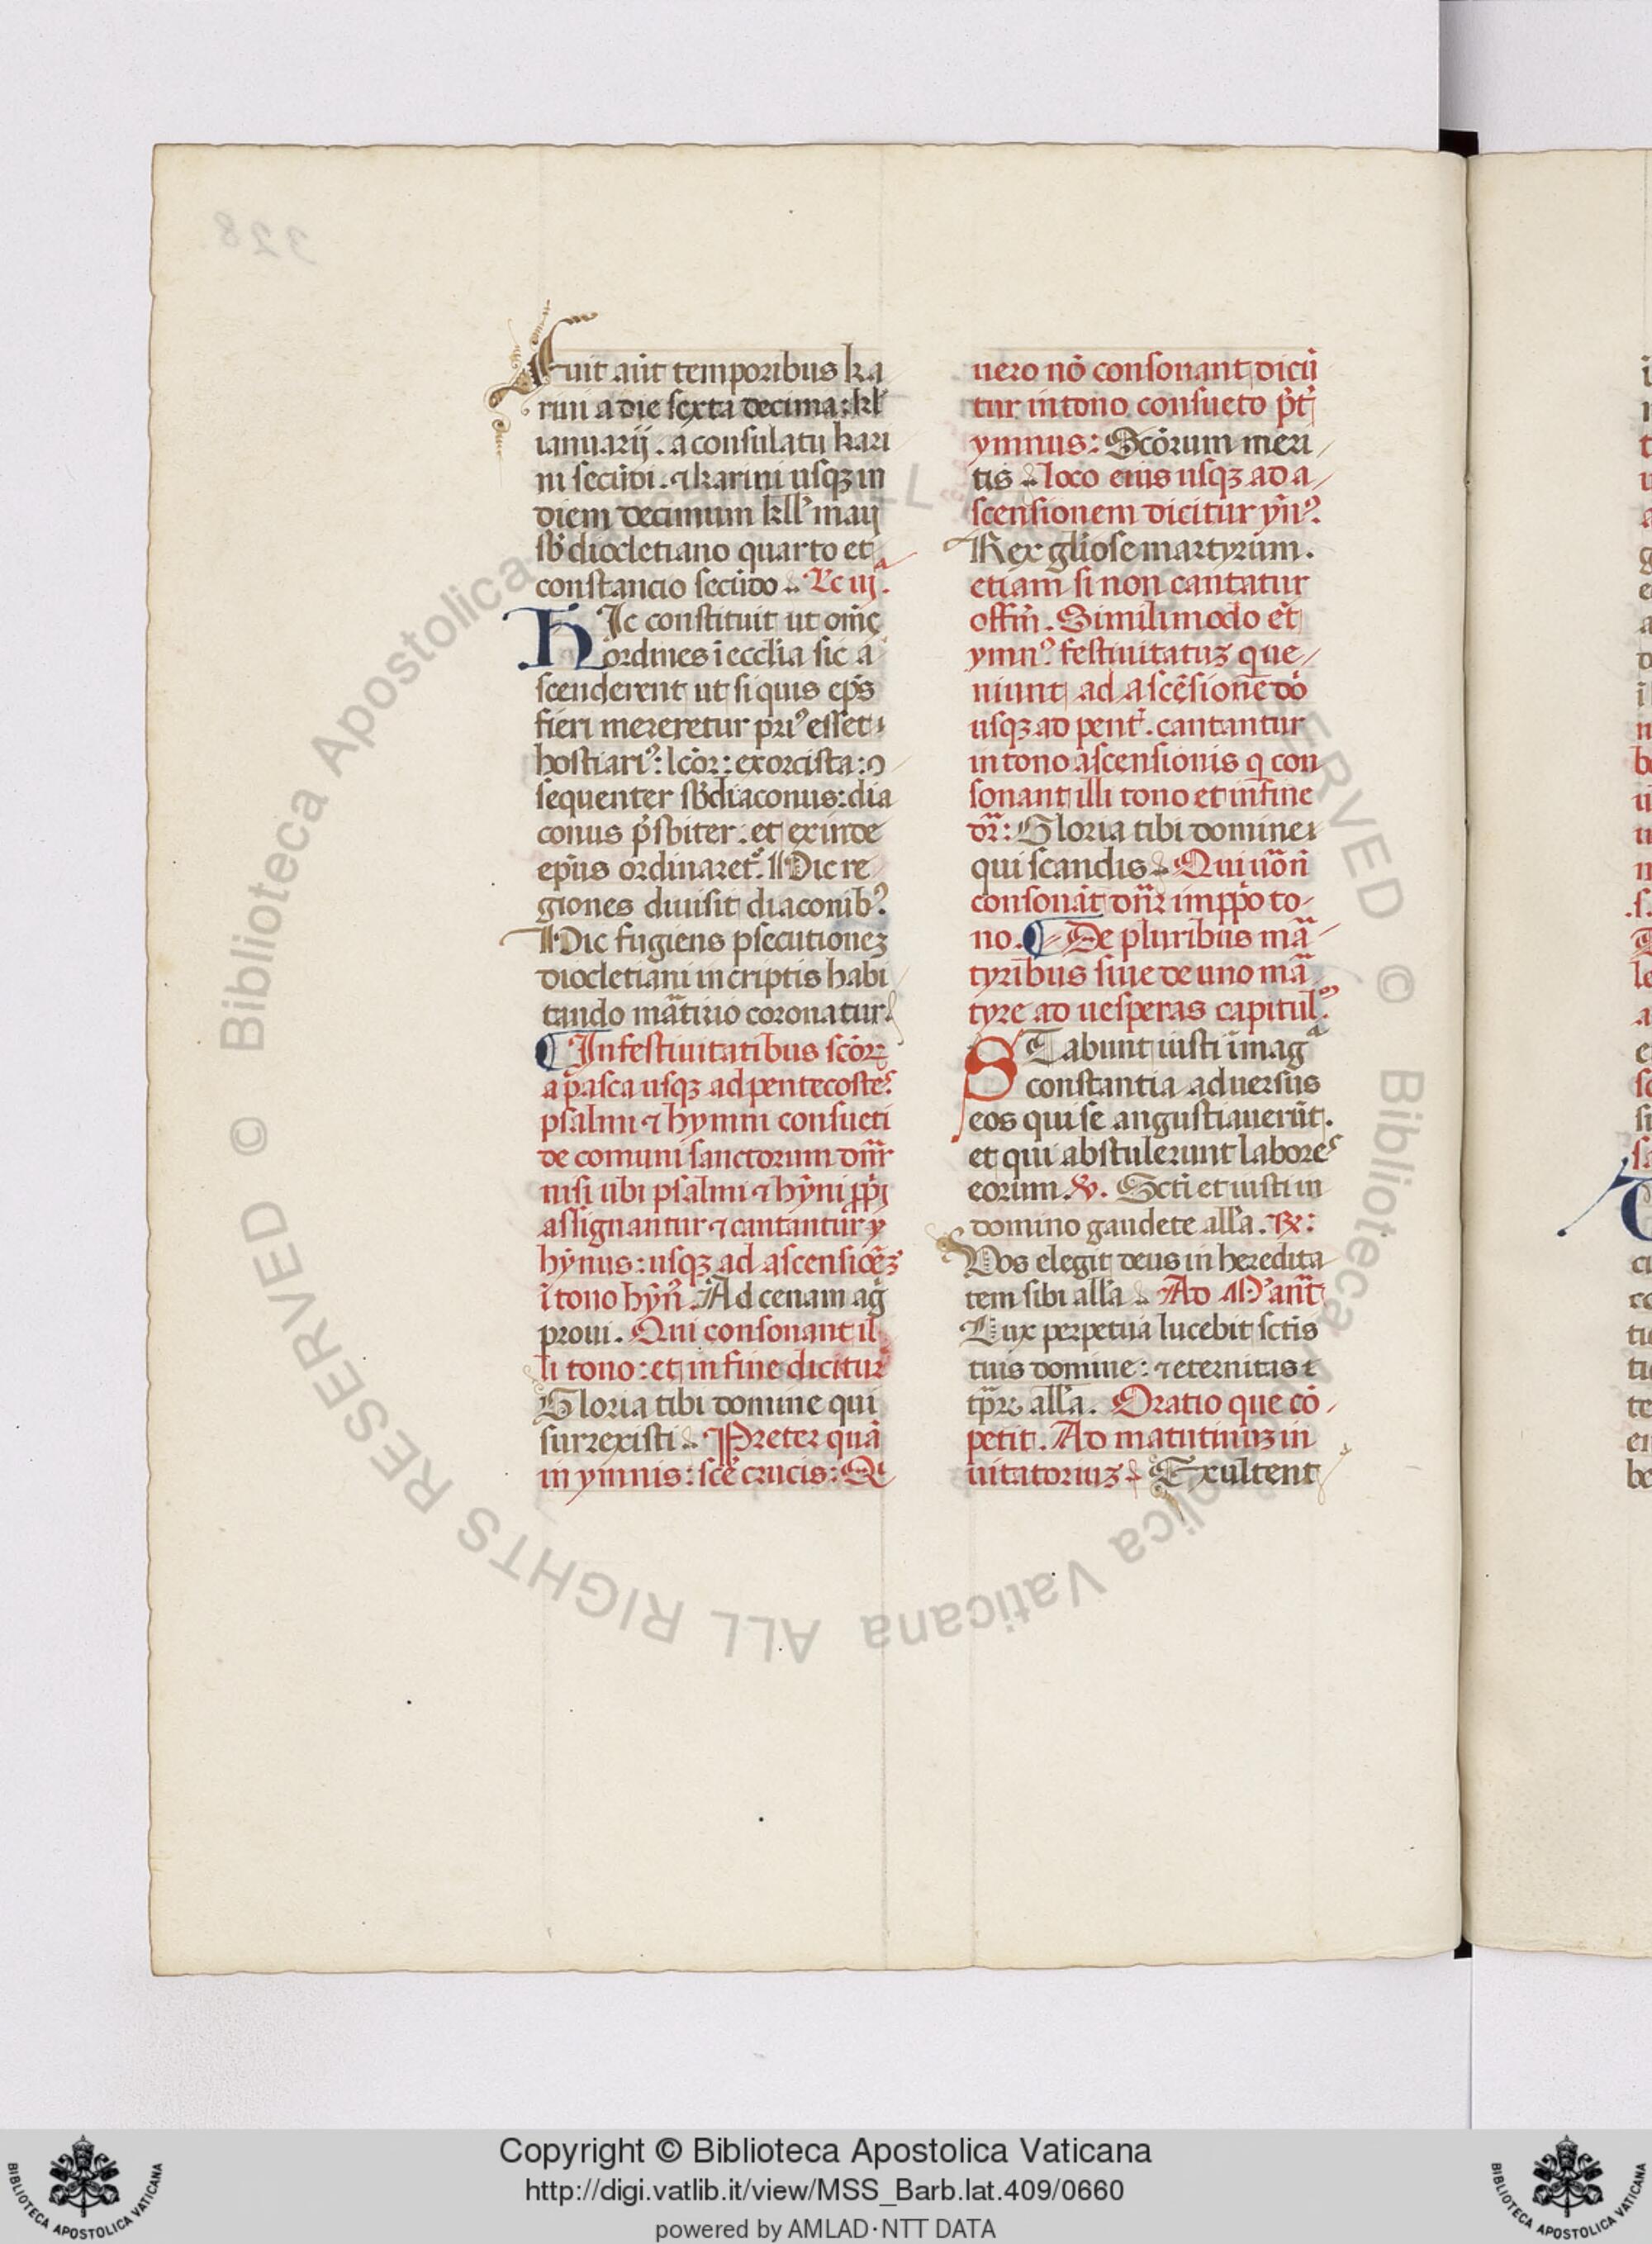 Fuit aūt temporibus ka
rini a die sexta decima: kl'
ianuarij. a consulatu kari
ni secūdi. ⁊ karini usqꝫ in
diem decimum kll' maij
sb̄ diocletiano quarto et
constancio secūdo. Lc iijᵃ.
HIc constituit ut om̄ẹ
ordines ī eccl̄ia sic a
scenderent ut si quis ep̄s
fieri mereretur pri⁹ esset
hostiari⁹: lc̄or: exorcista: ꝯ
sequenter sb̄diaconus: dia
conus p̄sbiter. et exinde
ep̄us ordinaret᷑. Hic re
giones diuisit diaconib⁹.
Hic fugiens ꝑsecutioneꝫ
diocletiani in criptis habi
tando mr̄atirio coronatur.
¶ In festiuitatibus sc̄oꝝ
a pasca usqꝫ ad pentecostes
psalmi ⁊ hymni consueti
de comuni sanctorum dn̄r
nisi ubi psalmi ⁊ hȳni ꝓpⁱj
assignantur ⁊ cantantur y
hȳnus: usqꝫ ad ascensiōeꝫ
ī tono hȳn̄. Ad cenam ag
proui. Qui consonant il
li tono: et in fine dicitur
Gloria tibi domine qui
surrexisti. Preter quā
in ymnis: sc̄e crucis: Q
uero nō consonant, dicū
tur in tono consueto p̄t᷑
ymnus: Sc̄orum meri
tis loco eius usqꝫ ad a
scensionem dicitur yn̄⁹.
Rex gl̄iose martyrum.
etiam si non cantatur
offm̄. Simili modo et
ymn⁹ festiuitatuꝫ que
niunt, ad ascēsionē dō
usqꝫ ad pent᷑. cantantur
in tono ascensionis q con
sonant illi tono et in fine
dr̄: Gloria tibi domine
qui scandis. Qui uō nō
consonāt dn̄r in ꝓpⁱo to
no. ¶ De pluribus mr̄a
tyribus siue de uno mr̄a
tyre ad uesperas capitul᷑.
STabunt iusti ī magᵃ
constantia aduersus
eos qui se angustiauerūt.
et qui abstulerunt labores
eorum. ℣. Sc̄ti et iusti in
domino gaudete all'a. ℟:
Vos elegit deus in heredita
tem sibi all'a. Ad M' ant̄
Lux perpetua lucebit sctis
tuis domine: ⁊ eternitas t
p̄rꝝ all'a. Oratio que cō
petit. Ad matutinuꝫ in
uitatoriuꝫ. Exultent
328
© Biblioteca Apostolica Vaticana ALL RIGHTS RESERVED © Biblioteca Apostolica Vaticana ALL RIGHTS RESERVED
Copyright © Biblioteca Apostolica Vaticana
http://digi.vatlib.it/view/MSS_Barb.lat.409/0660
powered by AMLAD·NTT DATA
BIBLIOTECA APOSTOLICA VATICANA
BIBLIOTECA APOSTOLICA VATICANA